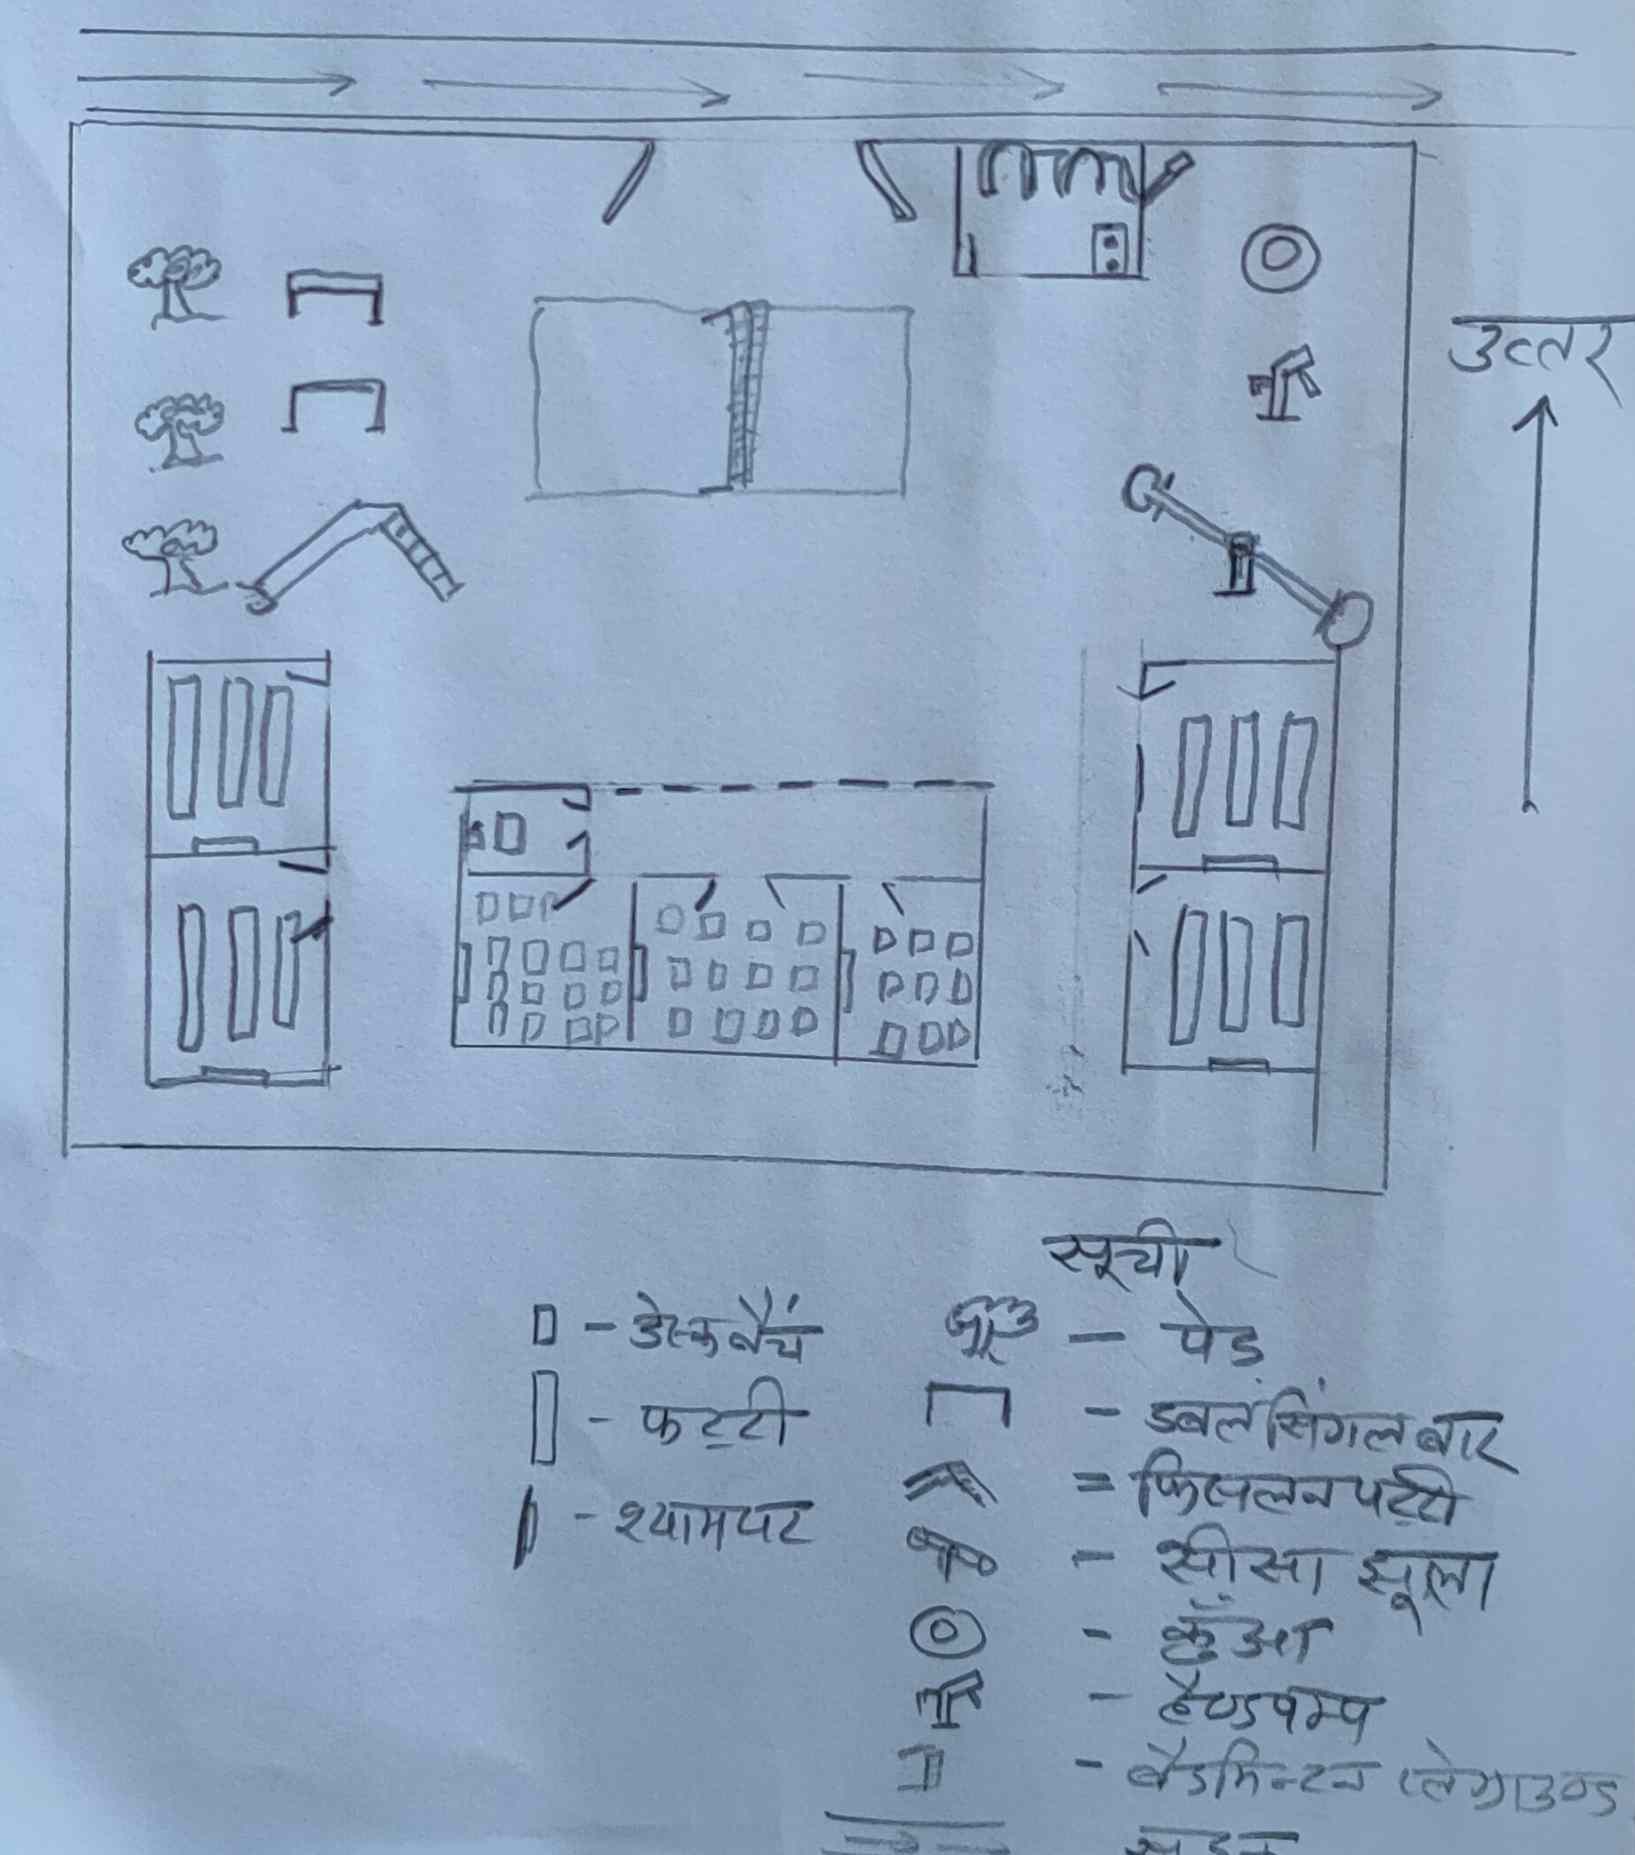 उत्तर
सूची
डेस्कबैंच
फट्टी
श्यामपट
पेड़
डबल सिंगल बार
फिसलन पट्टी
सी सा झूला
कुँआ
हैण्डपम्प
बैडमिन्टन प्लेग्राउण्ड
सड़क